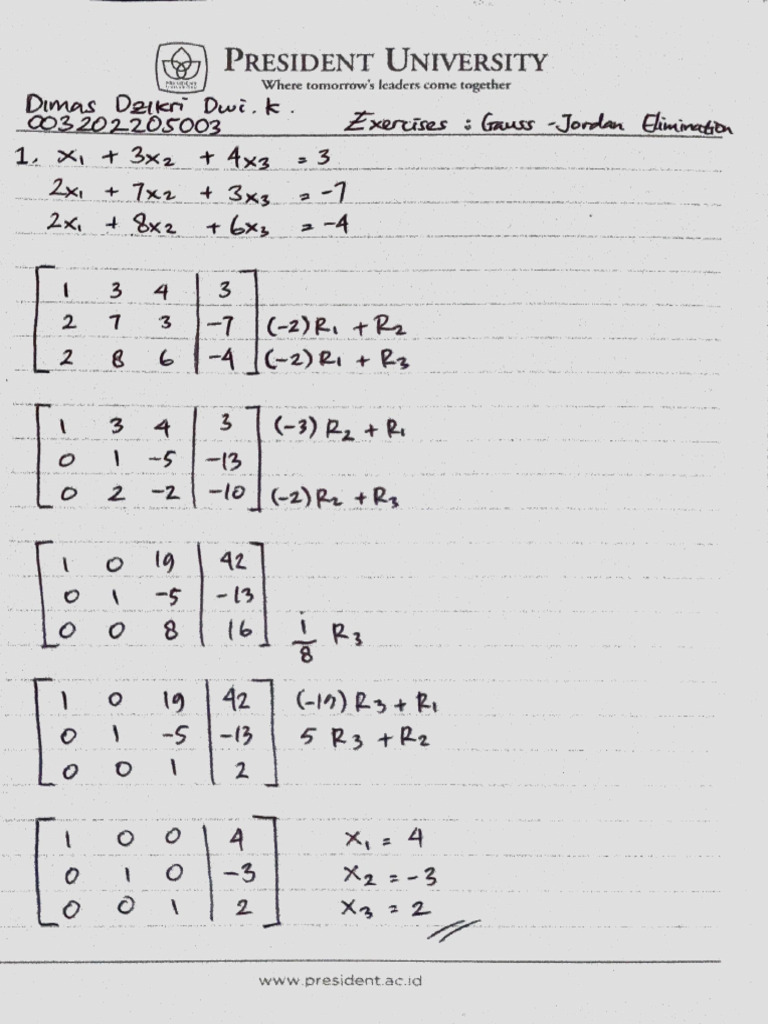 PRESIDENT UNIVERSITY
Where tomorrow's leaders come together
Dimas Dzikri Dwi. K.
003202205003 Exercises : Gauss - Jordan Elimination
1. x₁ + 3x₂ + 4x₃ = 3
2x₁ + 7x₂ + 3x₃ = -7
2x₁ + 8x₂ + 6x₃ = -4
1 3 4 | 3
2 7 3 | -7 (-2)R₁ + R₂
2 8 6 | -4 (-2)R₁ + R₃
1 3 4 | 3 (-3) R₂ + R₁
0 1 -5 | -13
0 2 -2 | -10 (-2)R₂ + R₃
1 0 19 | 42
0 1 -5 | -13
0 0 8 | 16 1/8 R₃
1 0 19 | 42 (-19) R₃ + R₁
0 1 -5 | -13 5 R₃ + R₂
0 0 1 | 2
1 0 0 | 4 x₁ = 4
0 1 0 | -3 x₂ = -3
0 0 1 | 2 x₃ = 2
www.president.ac.id